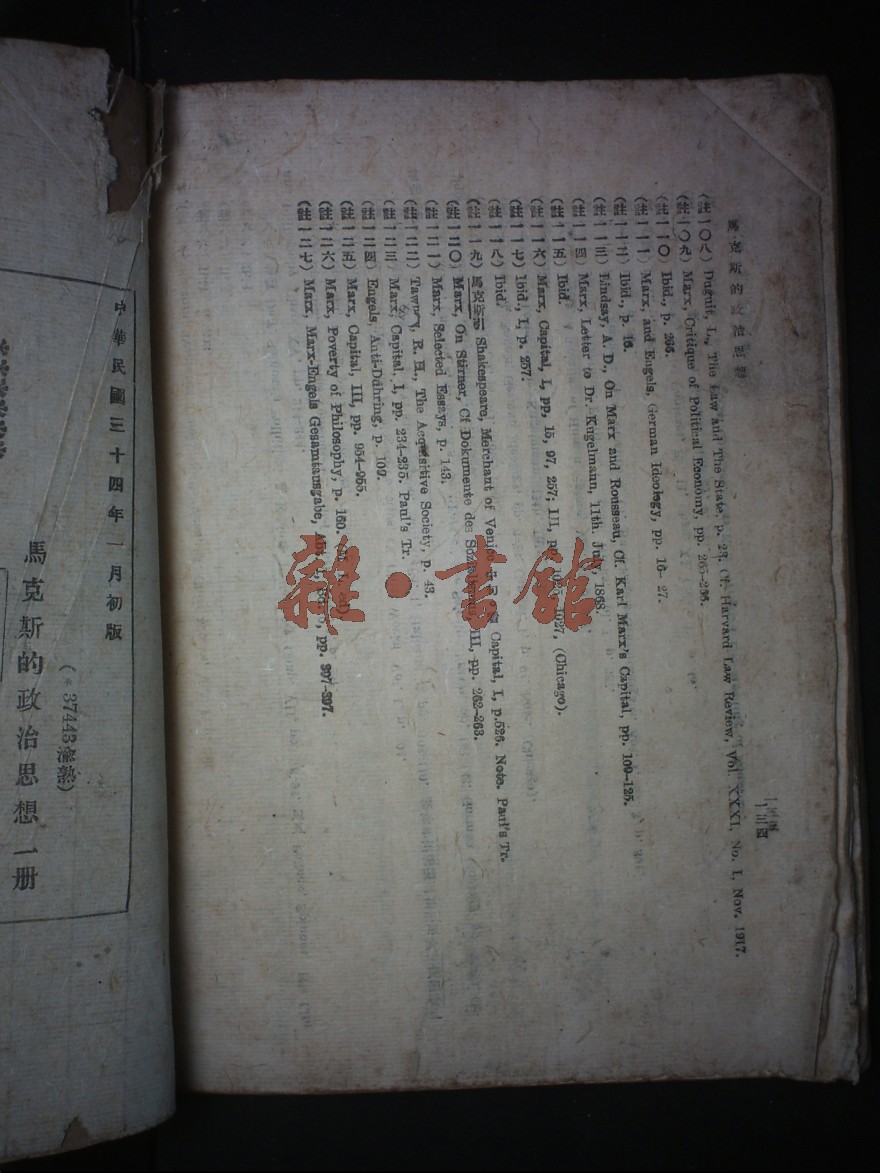 馬克斯的政治思想
(註一〇八) Duguit, L., The Law and The State, p. 23, Cf. Harvard Law Review, Vol. XXXI, No. I, Nov. 1917.
(註一〇九) Marx, Critique of Political Economy, pp.
(註一一〇) Ibid., p. 266.
(註一一一) Marx, and Engels, German Ideology, pp. 16-27.
(註一一二) Ibid., p. 16.
(註一一三) Lindsay, A. D., On Marx and Rousseau, Cf. Karl Marx's Capital, pp. 109-125.
(註一一四) Marx, Letter to Dr. Kugelmann, 11th. July, 1868.
(註一一五) Ibid.
(註一一六) Marx, Capital, I, pp. 15, 97, 257; III, pp. 1027, (Chicago).
(註一一七) Ibid., I, p. 257.
(註一一八) Ibid.
(註一一九) Shakespeare, Merchant of Venice, Capital, I, p.526. Note. Paul's Tr.
(註一二〇) Marx, On Stirner, Cf Dokumente des Sozialismus, III, pp. 262-263.
(註一二一) Marx, Selected Essays, p. 143.
(註一二二) Tawney, R. H., The Acquisitive Society, p. 43.
(註一二三) Marx, Capital, I, pp. 234-235. Paul's Tr.
(註一二四) Engels, Anti-Dühring, p. 109.
(註一二五) Marx, Capital, III, pp. 954-955.
(註一二六) Marx, Poverty of Philosophy, p. 160.
(註一二七) Marx, Marx-Engels Gesamtausgabe, pp.
中華民國三十四年一月初版
(*37443渝熟)
馬克斯的政治思想一册
雜·書館